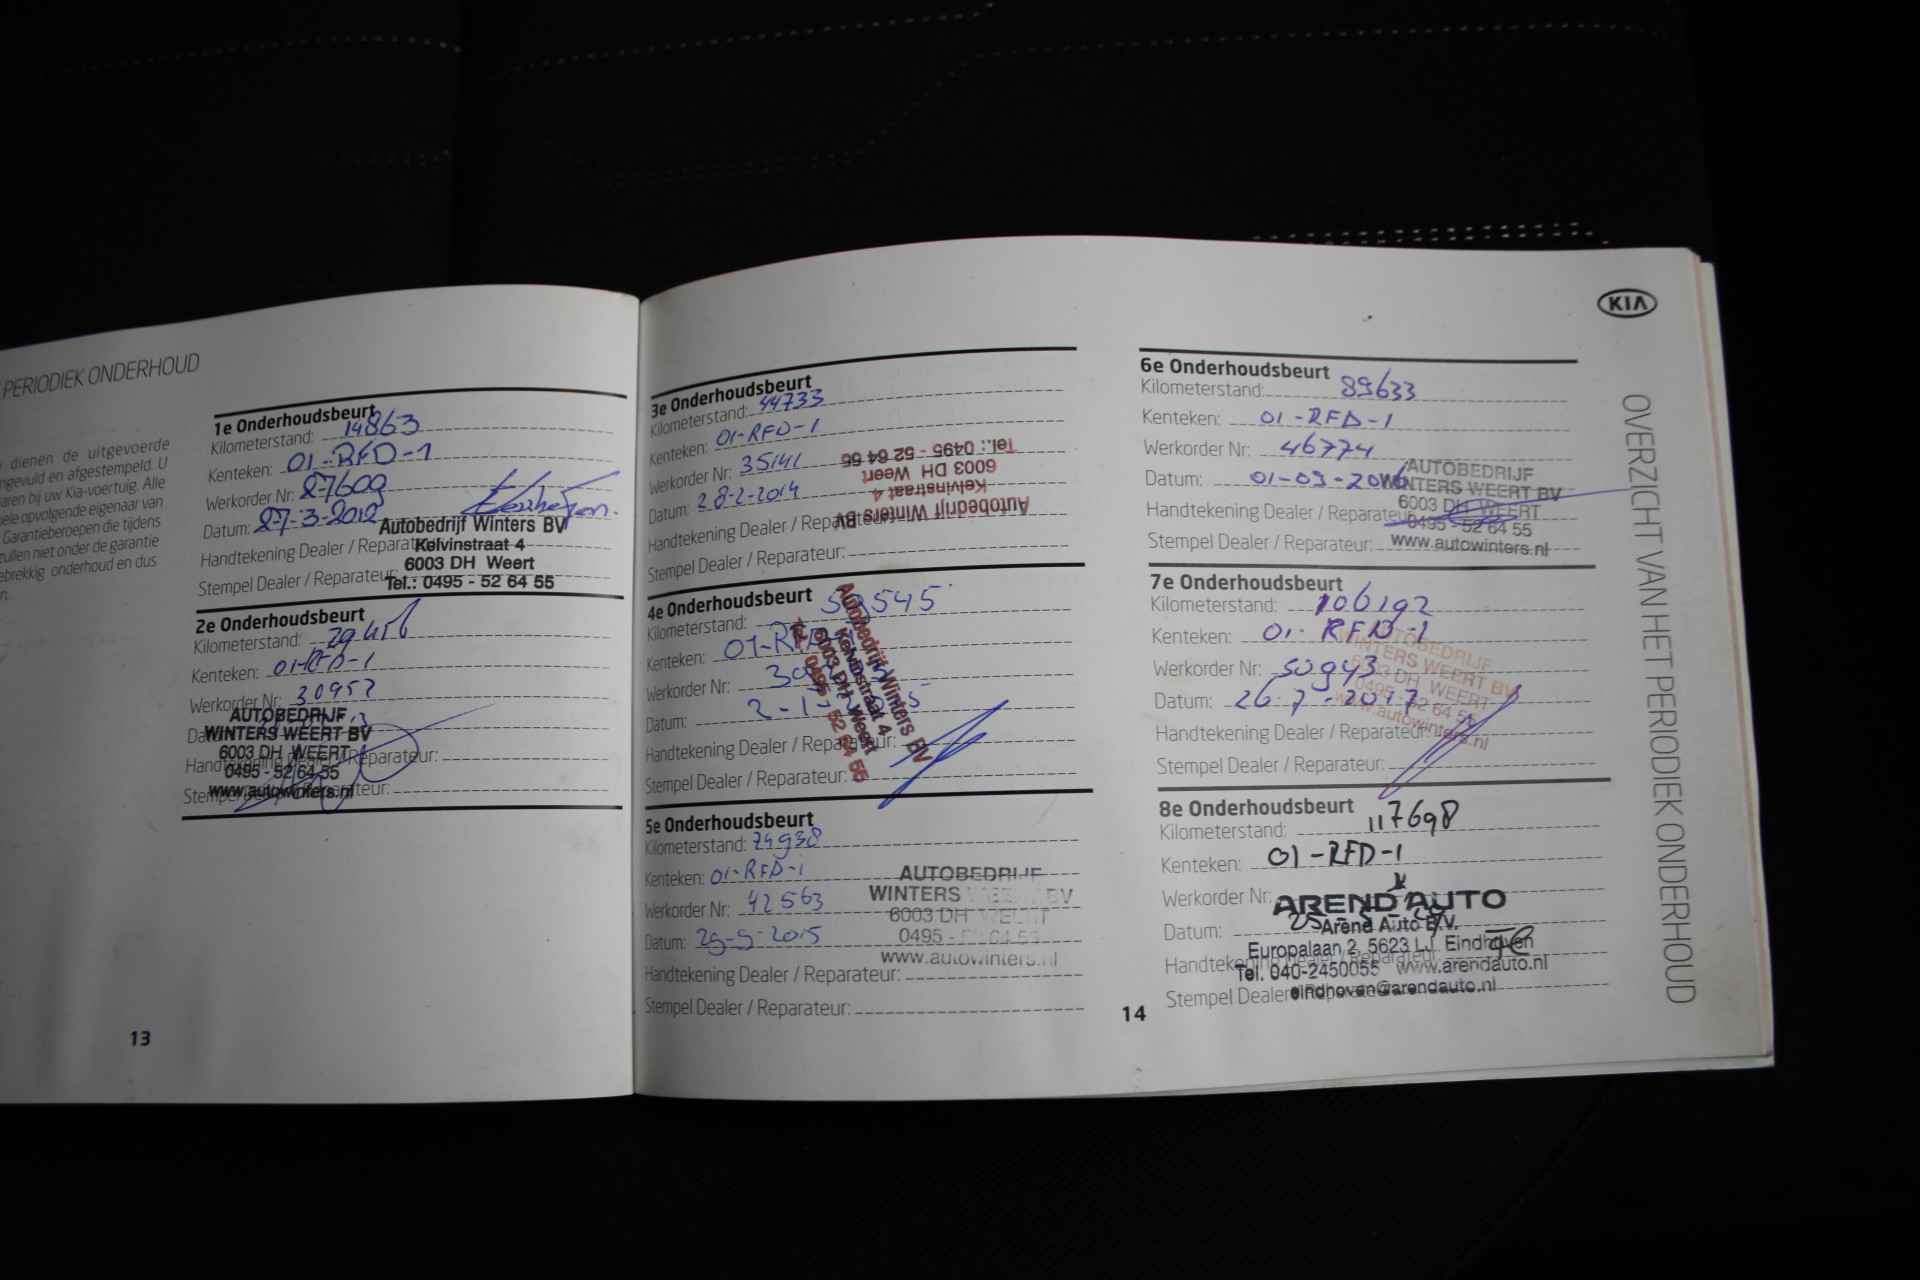 PERIODIEK ONDERHOUD
dienen de uitgevoerde
ngevuld en afgestempeld. U
aren bij uw Kia-voertuig. Alle
ele opvolgende eigenaar van
Garantieberoepen die tijdens
zullen niet onder de garantie
ebrekkig onderhoud en dus
n.
1e Onderhoudsbeurt
Kilometerstand: 14863
Kenteken: 01-RFD-1
Werkorder Nr: 27609
Datum: 27-3-2012
Handtekening Dealer / Reparateur:
Stempel Dealer / Reparateur:
Autobedrijf Winters BV
Kelvinstraat 4
6003 DH Weert
Tel.: 0495 - 52 64 55
2e Onderhoudsbeurt
Kilometerstand:
Kenteken: 01-RFD-1
Werkorder Nr: 30952
Datum:
Handtekening Dealer / Reparateur:
Stempel Dealer / Reparateur:
AUTOBEDRIJF
WINTERS WEERT BV
6003 DH WEERT
0495 - 52 64 55
www.autowinters.nl
13
3e Onderhoudsbeurt
Kilometerstand: 44733
Kenteken: 01-RFD-1
Werkorder Nr: 35141
Datum: 28-2-2014
Handtekening Dealer / Reparateur:
Stempel Dealer / Reparateur:
Autobedrijf Winters BV
Kelvinstraat 4
6003 DH Weert
Tel.: 0495 - 52 64 55
4e Onderhoudsbeurt
Kilometerstand: 59545
Kenteken: 01-RFD-1
Werkorder Nr:
Datum:
Handtekening Dealer / Reparateur:
Stempel Dealer / Reparateur:
Autobedrijf Winters BV
Kelvinstraat 4
6003 DH Weert
Tel.: 0495 - 52 64 55
5e Onderhoudsbeurt
Kilometerstand: 74938
Kenteken: 01-RFD-1
Werkorder Nr: 42563
Datum: 29-9-2015
Handtekening Dealer / Reparateur:
Stempel Dealer / Reparateur:
AUTOBEDRIJF
WINTERS WEERT BV
6003 DH WEERT
0495 - 52 64 55
www.autowinters.nl
14
KIA
6e Onderhoudsbeurt
Kilometerstand: 89633
Kenteken: 01-RFD-1
Werkorder Nr: 46774
Datum: 01-09-2016
Handtekening Dealer / Reparateur:
Stempel Dealer / Reparateur:
AUTOBEDRIJF
WINTERS WEERT BV
6003 DH WEERT
0495 - 52 64 55
www.autowinters.nl
7e Onderhoudsbeurt
Kilometerstand: 106192
Kenteken: 01-RFD-1
Werkorder Nr: 50943
Datum: 26-7-2017
Handtekening Dealer / Reparateur:
Stempel Dealer / Reparateur:
AUTOBEDRIJF
WINTERS WEERT BV
6003 DH WEERT
0495 - 52 64 55
www.autowinters.nl
8e Onderhoudsbeurt
Kilometerstand: 117698
Kenteken: 01-RFD-1
Werkorder Nr:
Datum:
Handtekening Dealer / Reparateur:
Stempel Dealer / Reparateur:
AREND AUTO
Arend Auto B.V.
Europalaan 2, 5623 LJ Eindhoven
Tel. 040-2450055 www.arendauto.nl
eindhoven@arendauto.nl
OVERZICHT VAN HET PERIODIEK ONDERHOUD